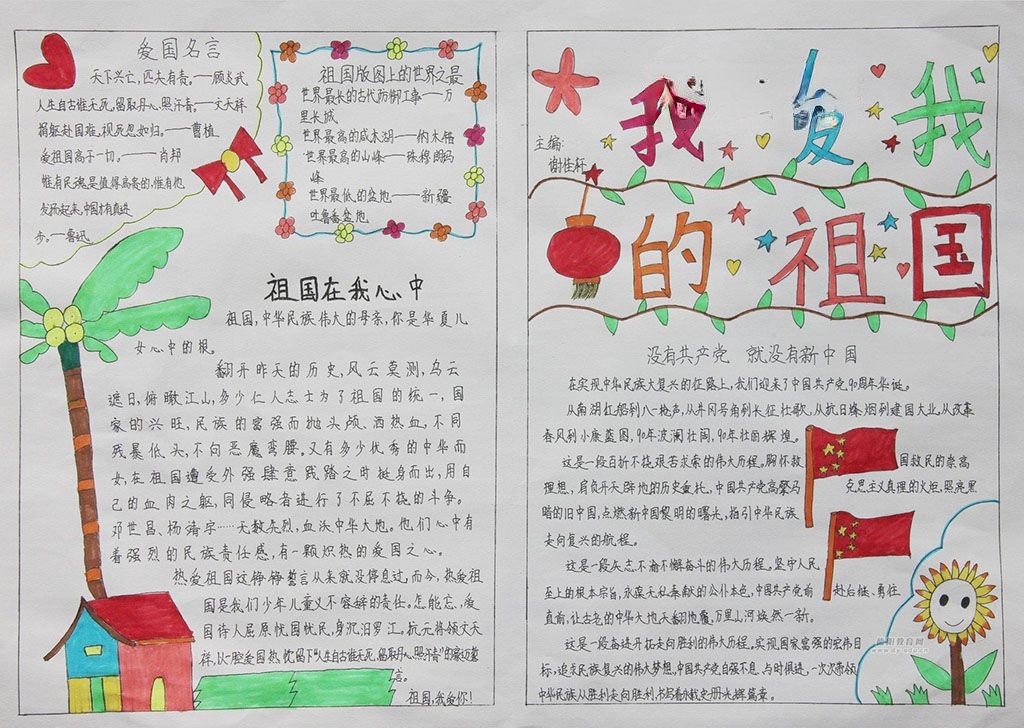 爱国名言
天下兴亡，匹夫有责。——顾炎武
人生自古谁无死，留取丹心照汗青。——文天祥
捐躯赴国难，视死忽如归。——曹植
爱祖国高于一切。——肖邦
惟有民魂是值得宝贵的，惟有他
发扬起来，中国才有真进
步。——鲁迅
祖国版图上的世界之最
世界最长的古代防御工事——万
里长城
世界最高的咸水湖——纳木错
世界最高的山峰——珠穆朗玛
峰
世界最低的盆地——新疆
吐鲁番盆地
祖国在我心中
祖国，中华民族伟大的母亲，你是华夏儿
女心中的根。
翻开昨天的历史，风云莫测，乌云
遮日，俯瞰江山，多少仁人志士为了祖国的统一，国
家的兴旺，民族的富强而抛头颅、洒热血，不同
残暴低头，不向恶魔弯腰。又有多少优秀的中华儿
女，在祖国遭受外强肆意践踏之时挺身而出，用自
己的血肉之躯，同侵略者进行了不屈不挠的斗争。
邓世昌、杨靖宇……无数先烈，血沃中华大地。他们心中有
着强烈的民族责任感，有一颗炽热的爱国之心。
热爱祖国这铮铮誓言从来就没停息过，而今，热爱祖
国是我们少年儿童义不容辞的责任。怎能忘，爱
国诗人屈原忧国忧民，身沉汨罗江。抗元将领文天
祥，以一腔爱国热忱留下“人生自古谁无死，留取丹心照汗青”的豪迈誓
言。
祖国，我爱你！
我爱我
主编：
谢佳轩
的祖国
没有共产党 就没有新中国
在实现中华民族大复兴的征路上，我们迎来了中国共产党90周年华诞。
从南湖红船到八一枪声，从井冈号角到长征壮歌，从抗日烽烟到建国大业，从改革
春风到小康蓝图，90年波澜壮阔，90年壮丽辉煌。
这是一段百折不挠艰苦求索的伟大历程。胸怀救国救民的崇高
理想，肩负开天辟地的历史重托，中国共产党高擎马克思主义真理的火炬，照亮黑
暗的旧中国，点燃新中国黎明的曙光，指引中华民族
走向复兴的航程。
这是一段矢志不渝不懈奋斗的伟大历程。坚守人民
至上的根本宗旨，永葆无私奉献的公仆本色，中国共产党前赴后继、勇往
直前，让古老的中华大地天翻地覆，万里山河焕然一新。
这是一段奋进开拓走向胜利的伟大历程。实现国家富强的宏伟目
标，追求民族复兴的伟大梦想，中国共产党自强不息，与时俱进，一次次带领
中华民族从胜利走向胜利，书写着